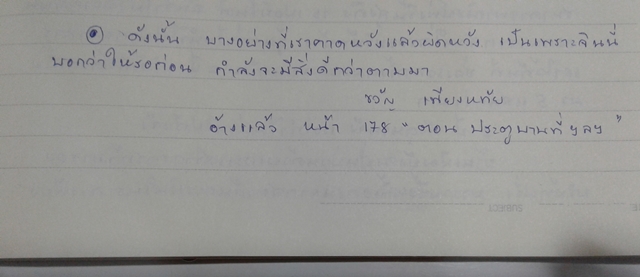 ดังนั้น บางอย่างที่เราคาดหวังแล้วผิดหวัง เป็นเพราะจินนี่
บอกว่าให้รอก่อน กำลังจะมีสิ่งดีกว่าตามมา
ขวัญ เพียงหทัย
อ้างแล้ว หน้า 178 " ตอน ประตูบานที่ ฯลฯ "
SUBJECT